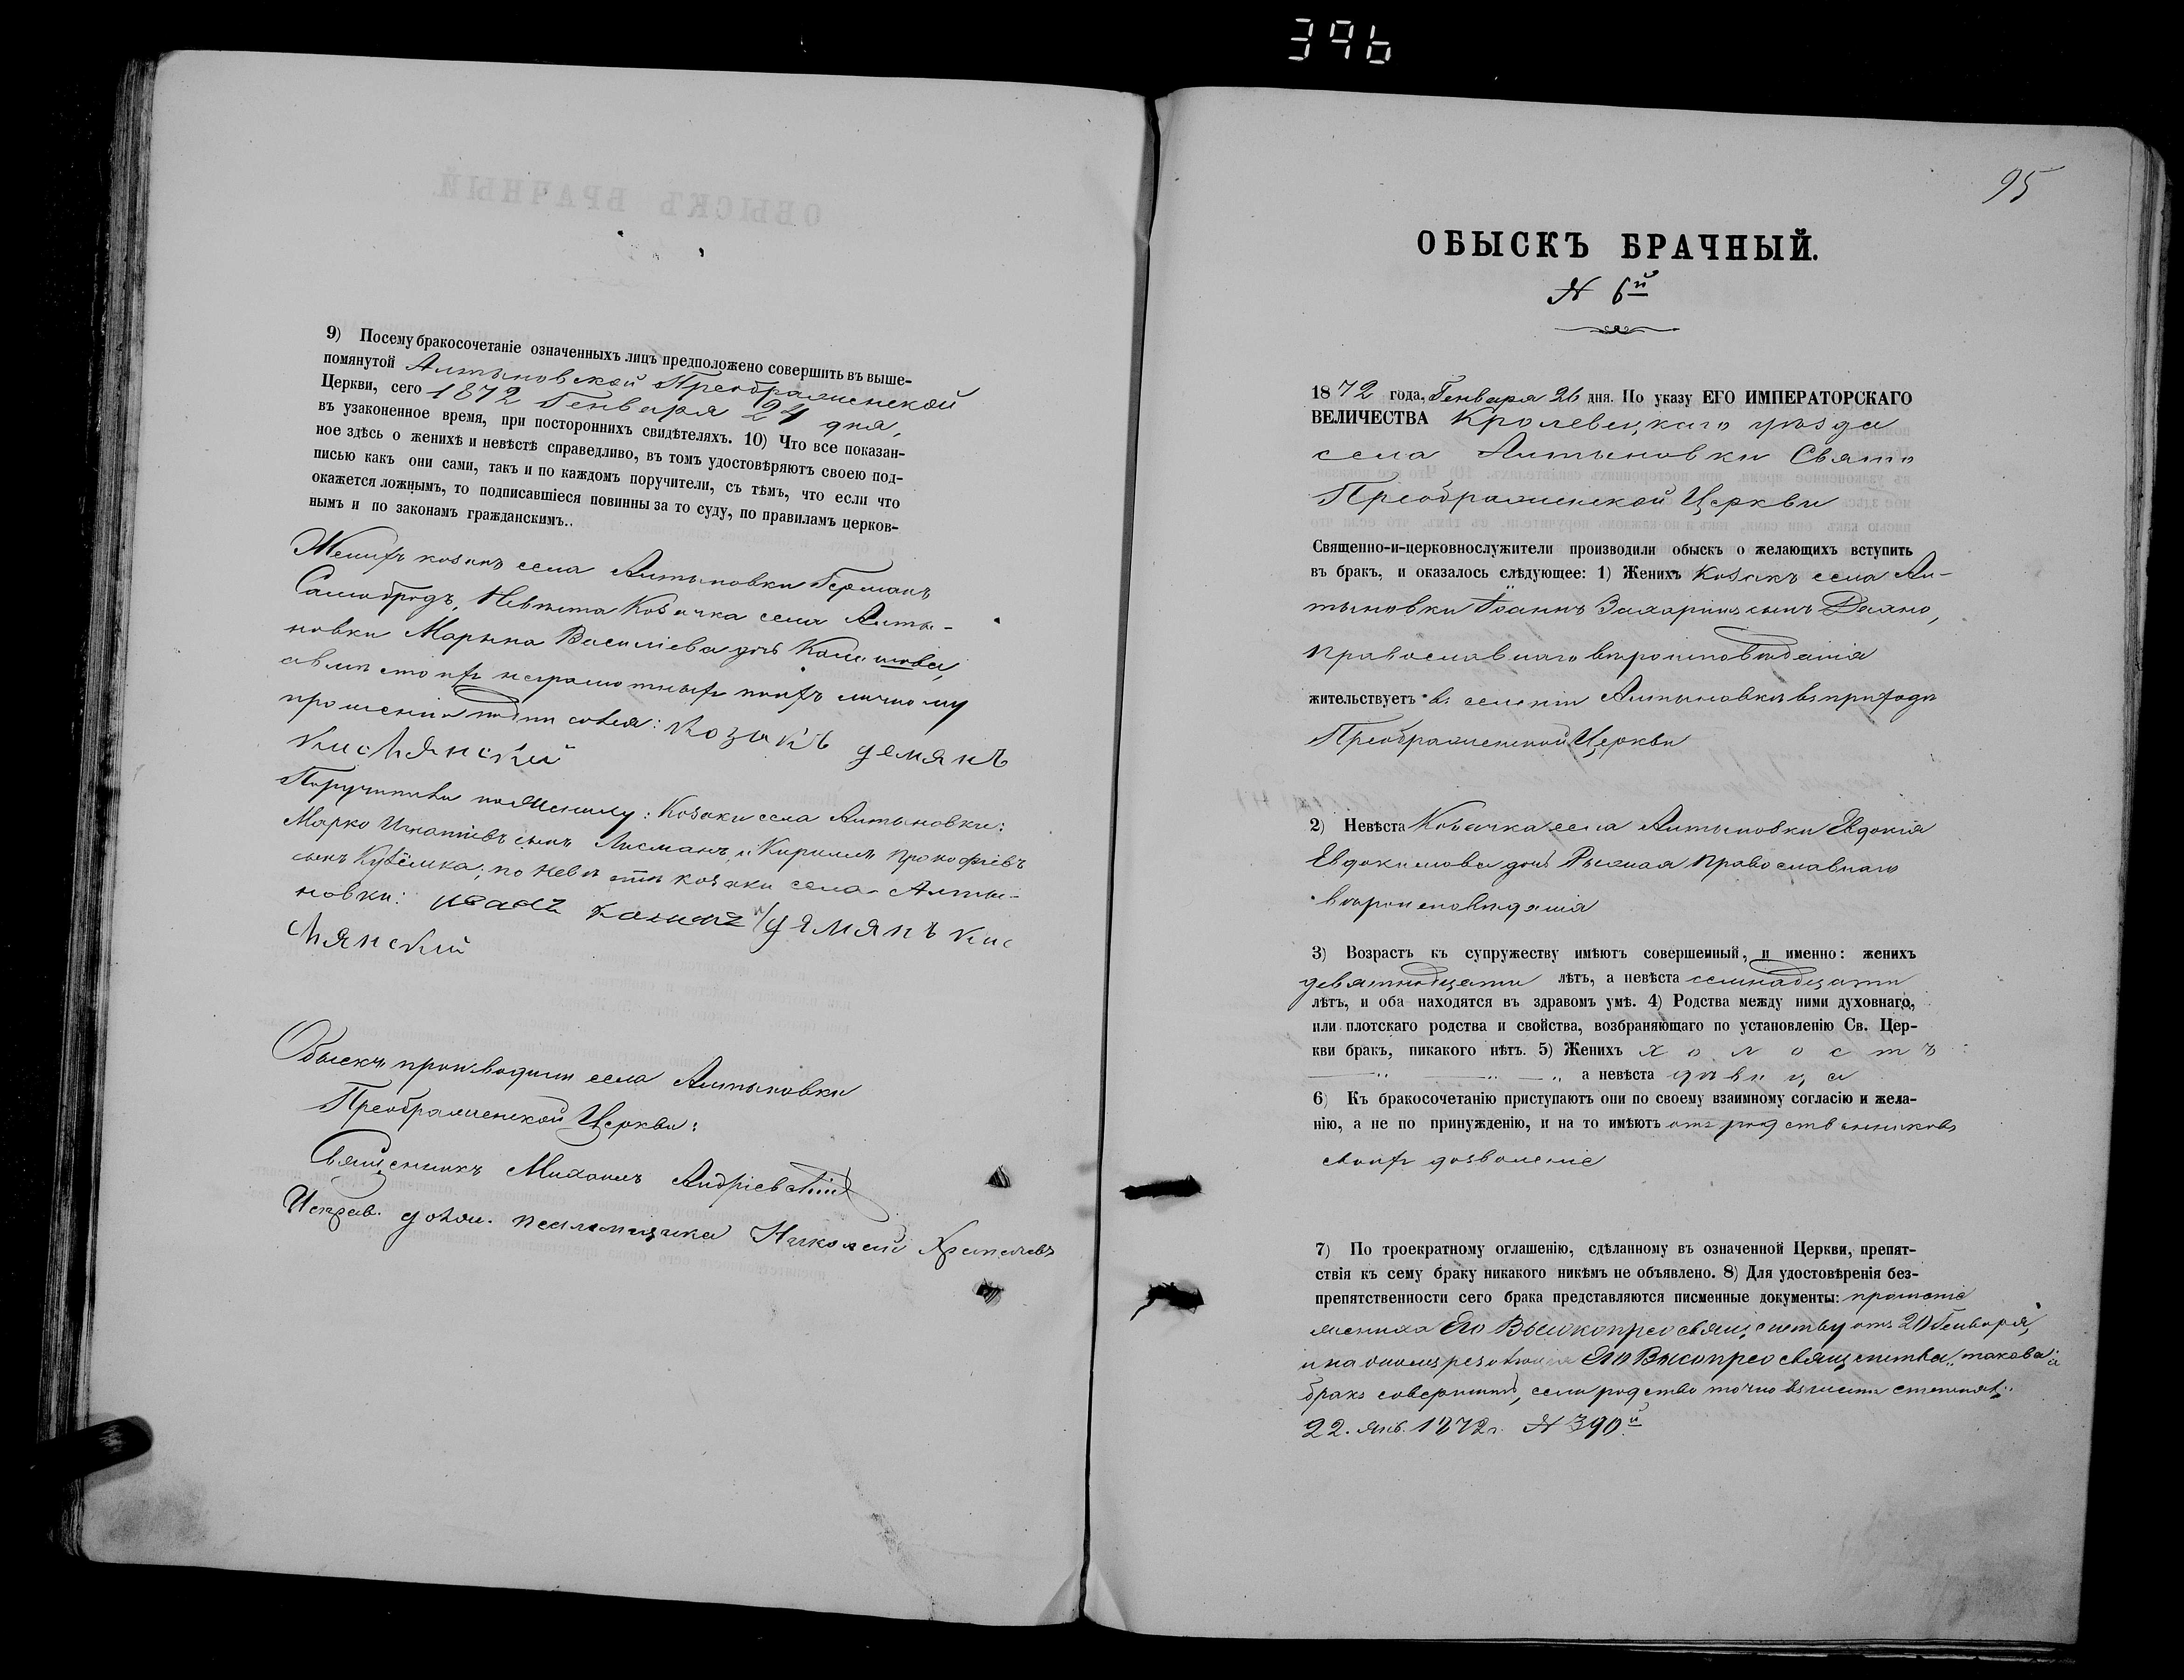 396
9) Посему бракосочетаніе означенныхъ лицъ предположено совершить въ выше-
помянутой Алтыновской Преображенской
Церкви, сего 1872 Генваря 24 дня,
въ узаконенное время, при постороннихъ свидѣтеляхъ. 10) Что все показан-
ное здѣсь о женихѣ и невѣстѣ справедливо, въ томъ удостовѣряютъ своею под-
писью какъ они сами, такъ и по каждомъ поручители, съ тѣмъ, что если что
окажется ложнымъ, то подписавшіеся повинны за то суду, по правиламъ церков-
нымъ и по законамъ гражданскимъ..
Женихъ козакъ села Алтыновки Германъ
Самобродъ, Невѣста Козачка села Алты-
новки Марына Василіева дочь
а вмѣсто ихъ неграмотныхъ поихъ личному
прошенію подписался: козакъ демянъ
кислянский
Поручители по Женихѣ: Козаки села Алтыновки:
Марко Игнатіевъ сынъ Лисманъ, и Кириллъ Прокофіевъ
сынъ; по Невѣстѣ козаки села Алты-
новки: иванъ и демянъ кис
лянский
Обыскъ производили села Алтыновки
Преображенской Церкви:
Священникъ Михаилъ Андріевскій
Исправ. долж. псаломщика Николай
95
ОБЫСКЪ БРАЧНЫЙ.
№ 6й
1872 года, Генваря 26 дня. По указу ЕГО ИМПЕРАТОРСКАГО
ВЕЛИЧЕСТВА Кролевецкаго уѣзда
села Алтыновки Свято
Преображенской Церкви
Священно-и-церковнослужители производили обыскъ о желающихъ вступить
въ бракъ, и оказалось слѣдующее: 1) Женихъ Козакъ села Ал-
тыновки Іоаннъ Захаріинъ сынъ Дахно,
православнаго вѣроисповѣданія
жительствуетъ въ селеніи Алтыновкѣ въ приходѣ
Преображенской Церкви
2) Невѣста Козачка села Алтыновки Евдокія
Евдокимова дочь Рыжая православнаго
вѣроисповѣданія
3) Возрастъ къ супружеству имѣютъ совершенный, и именно: женихъ
девятнадцати лѣтъ, а невѣста семнадцати
лѣтъ, и оба находятся въ здравомъ умѣ. 4) Родства между ними духовнаго,
или плотскаго родства и свойства, возбраняющаго по установленію Св. Цер-
кви бракъ, никакого нѣтъ. 5) Женихъ холостъ
а невѣста дѣвица
6) Къ бракосочетанію приступаютъ они по своему взаимному согласію и жела-
нію, а не по принужденію, и на то имѣютъ отъ родственниковъ
своихъ дозволеніе
7) По троекратному оглашенію, сдѣланному въ означенной Церкви, препят-
ствія къ сему браку никакого никѣмъ не объявлено. 8) Для удостовѣренія без-
препятственности сего брака представляются писменные документы: прошеніе
жениха Его Высокопреосвященству отъ 20 Генваря,
и на ономъ резолюція Его Высопреосвященства, такова:
бракъ совершить, если родство точно въ шести степеняхъ.
22. Янв. 1872 г. № 390й